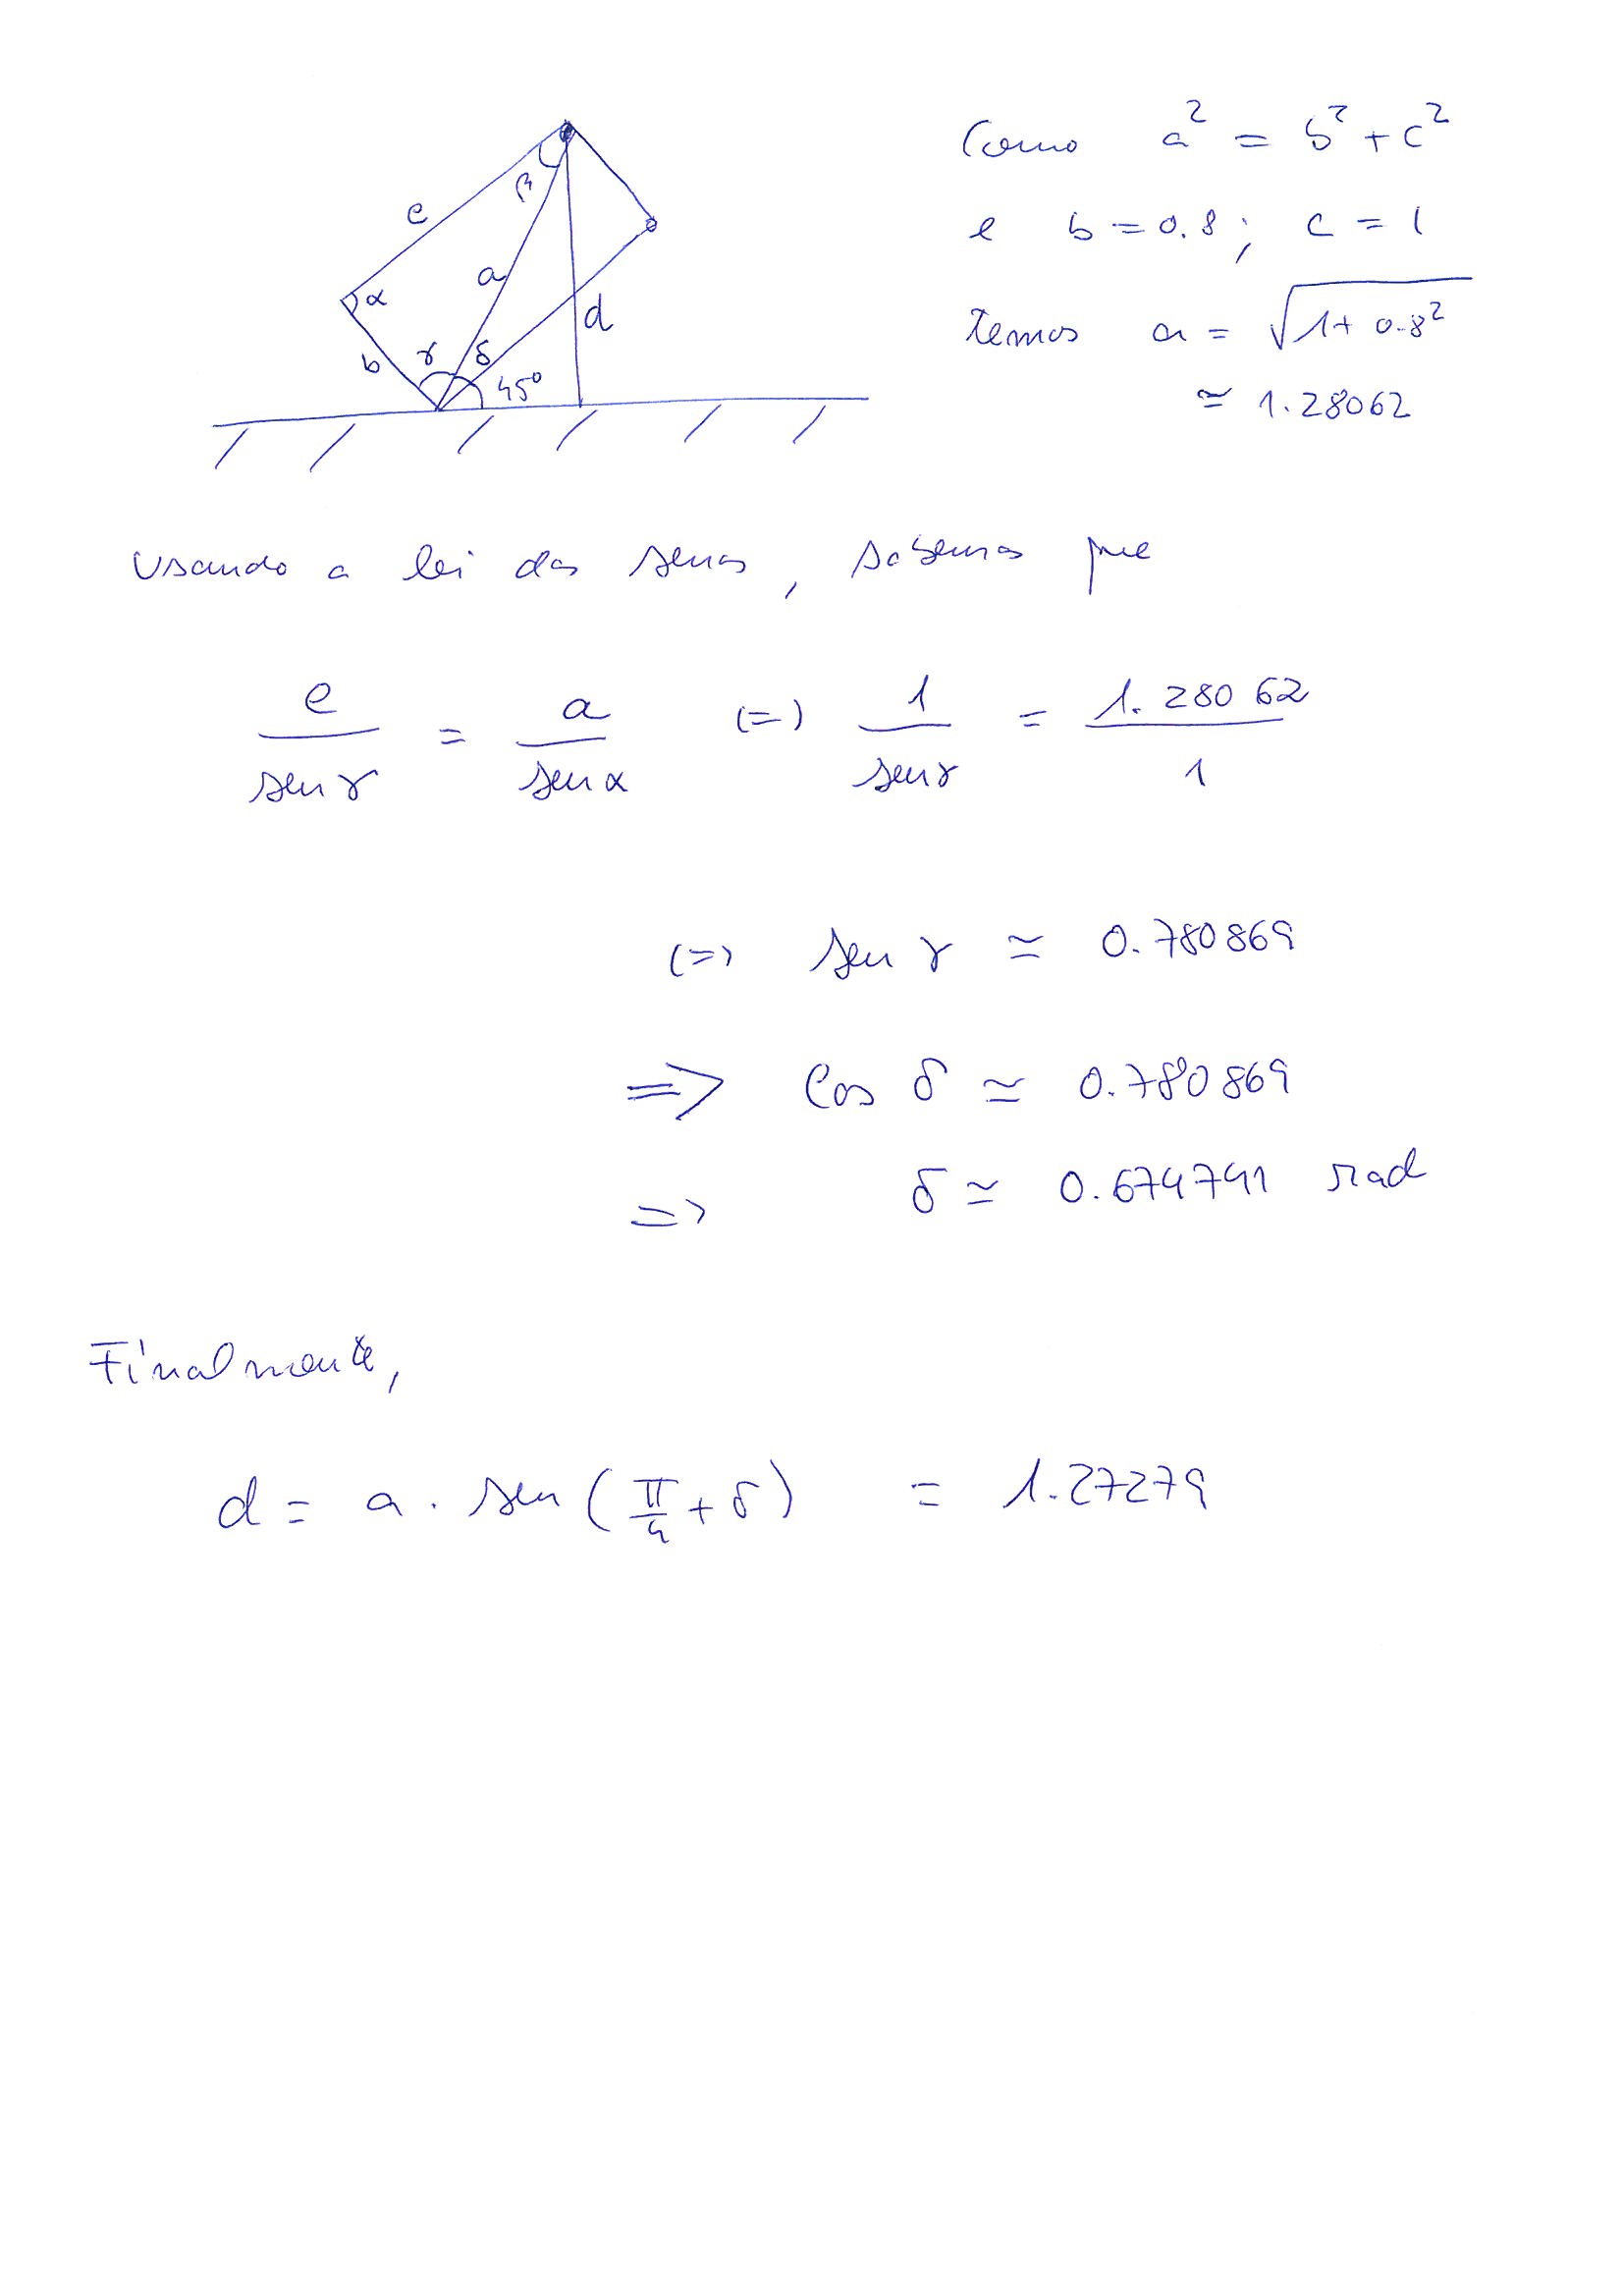 Como a² = b² + c²
e b = 0.8 ; c = 1
temos a = √(1 + 0.8²)
≃ 1.28062
c
β
a
α
d
b
γ
δ
45°
Usando a lei dos senos, sabemos que
c / sen γ = a / sen α (=) 1 / sen γ = 1.28062 / 1
(=) sen γ ≃ 0.780869
=> Cos δ ≃ 0.780869
=> δ ≃ 0.674741 rad
Finalmente,
d = a . sen (π/4 + δ) = 1.27279